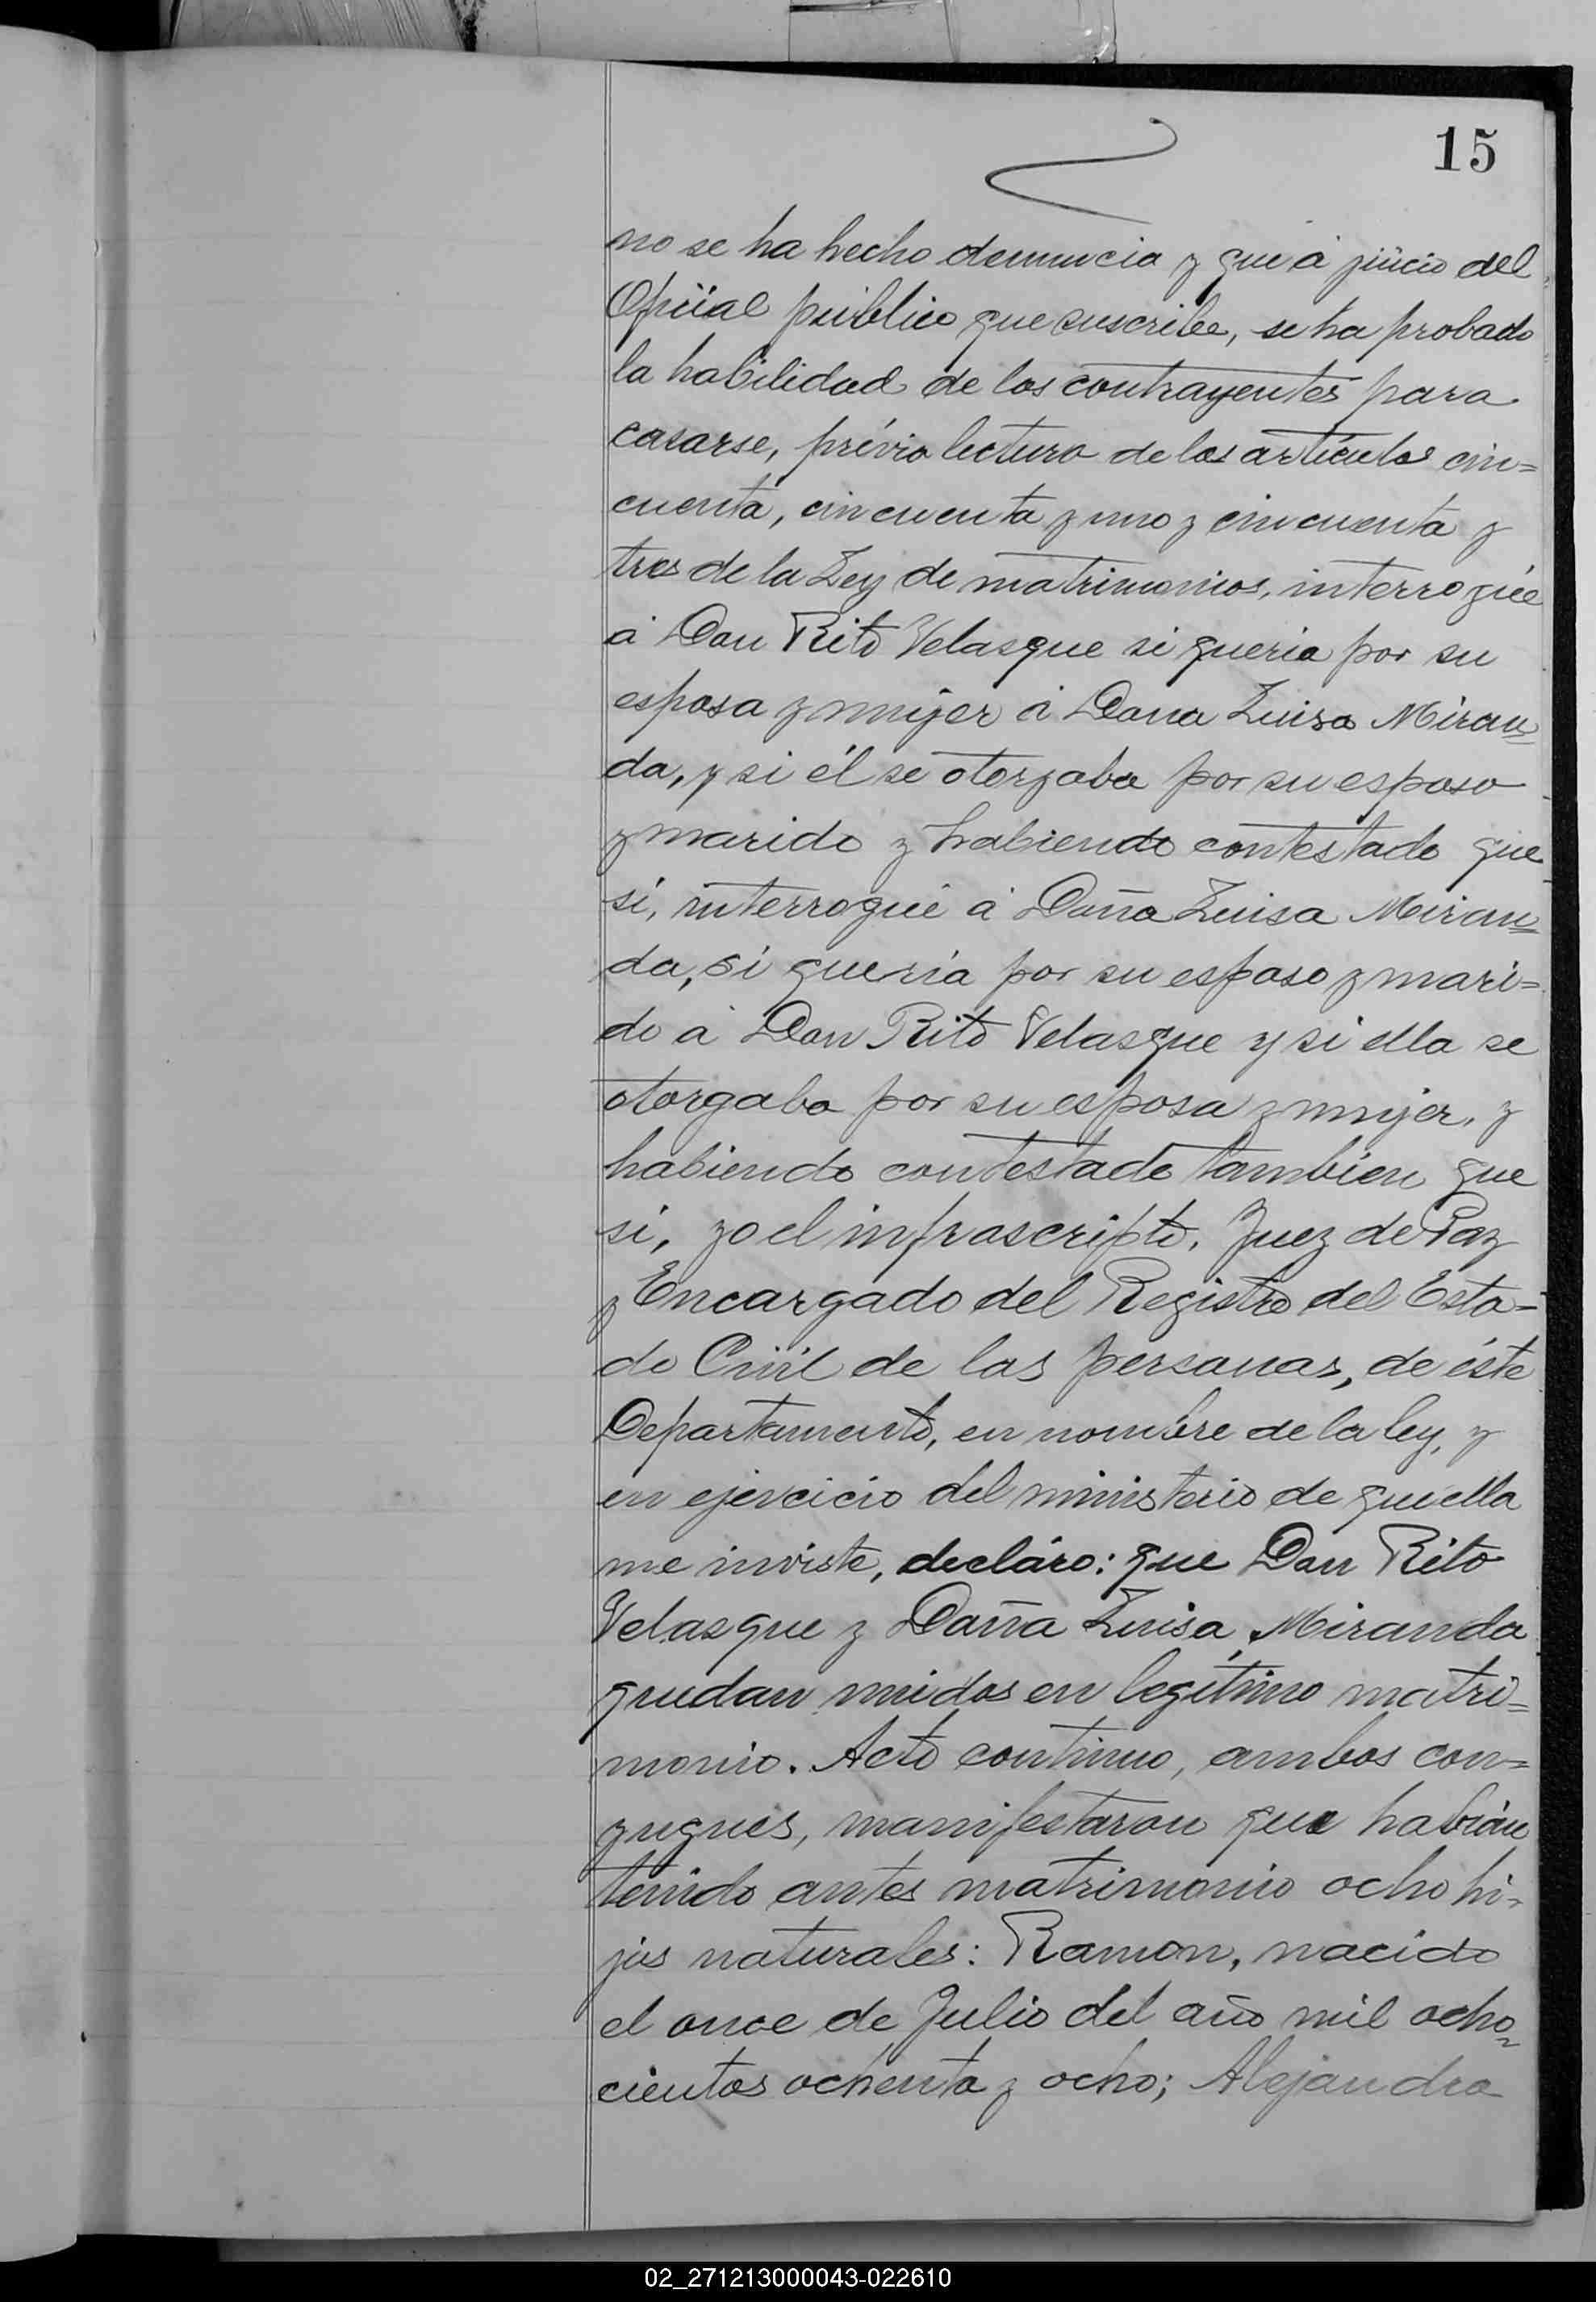 15
no se ha hecho denuncia y que á juicio del
Oficial público que suscribe, se ha probado
la habilidad de los contrayentes para
casarse, prévia lectura de los artículos cin=
cuenta, cincuenta y uno y cincuenta y
tres de la Ley de matrimonios, interrogué
á Don Rito Velasque si queria por su
esposa y mujer á Dona Luisa Miran=
da, y si él se otorgaba por su esposo
y marido y habiendo contestado que
sí, interrogué á Doña Luisa Miran=
da, si queria por su esposo y mari=
do á Don Rito Velasque y si ella se
otorgaba por su esposa y mujer, y
habiendo contestado tambien que
si, yo el infrascripto, Juez de Paz
y Encargado del Registro del Esta-
do Civil de las personas, de éste
Departamento, en nombre de la ley, y
en ejercicio del ministerio de que ella
me inviste, decláro: que Don Rito
Velasque y Doña Luisa Miranda
quedan unidos en legítimo matri=
monio. Acto continuo, ambos con=
yugues, manifestaron que habian
tenido antes matrimonio ocho hi-
jos naturales: Ramon, nacido
el once de Julio del año mil ocho=
cientos ochenta y ocho; Alejandra
02_271213000043-022610